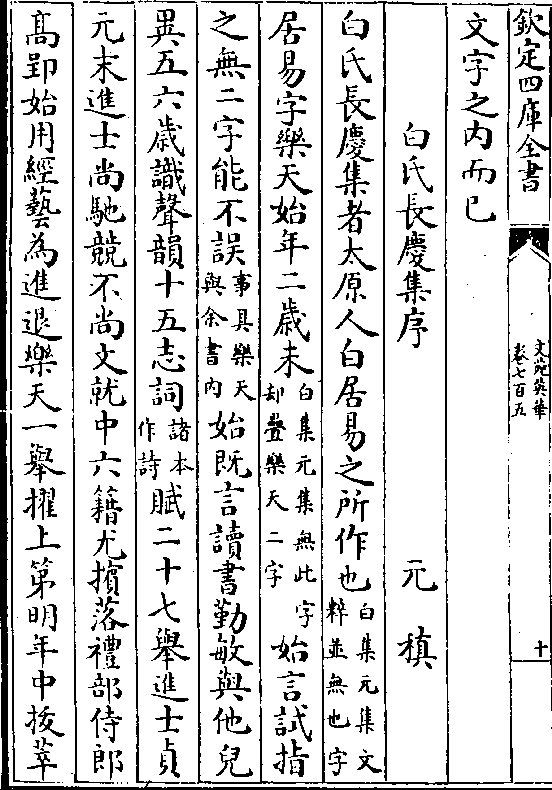 欽定四庫全書
文苑英華
卷七百五
十
文字之內而已
白氏長慶集序 元稹
白氏長慶集者太原人白居易之所作也白集元集文粹並無也字
居易字樂天始年二歲未白集元集無此字却疊樂天二字始言試指
之無二字能不誤事具樂天與余書內始既言讀書勤敏與他兒
異五六歲識聲韻十五志詞諸本作詩賦二十七舉進士貞
元末進士尚馳競不尚文就中六籍尤擯落禮部侍郎
髙郢始用經藝為進退樂天一舉擢上第明年中拔萃